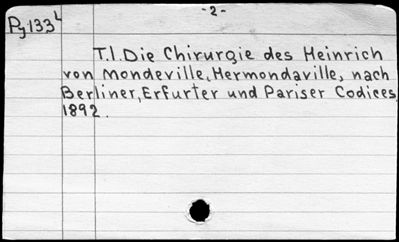 -2-
Pg133L
T.1.Die Chirurgie des Heinrich
von Mondeville, Hermondaville, nach
Berliner, Erfurter und Pariser Codices.
1892.